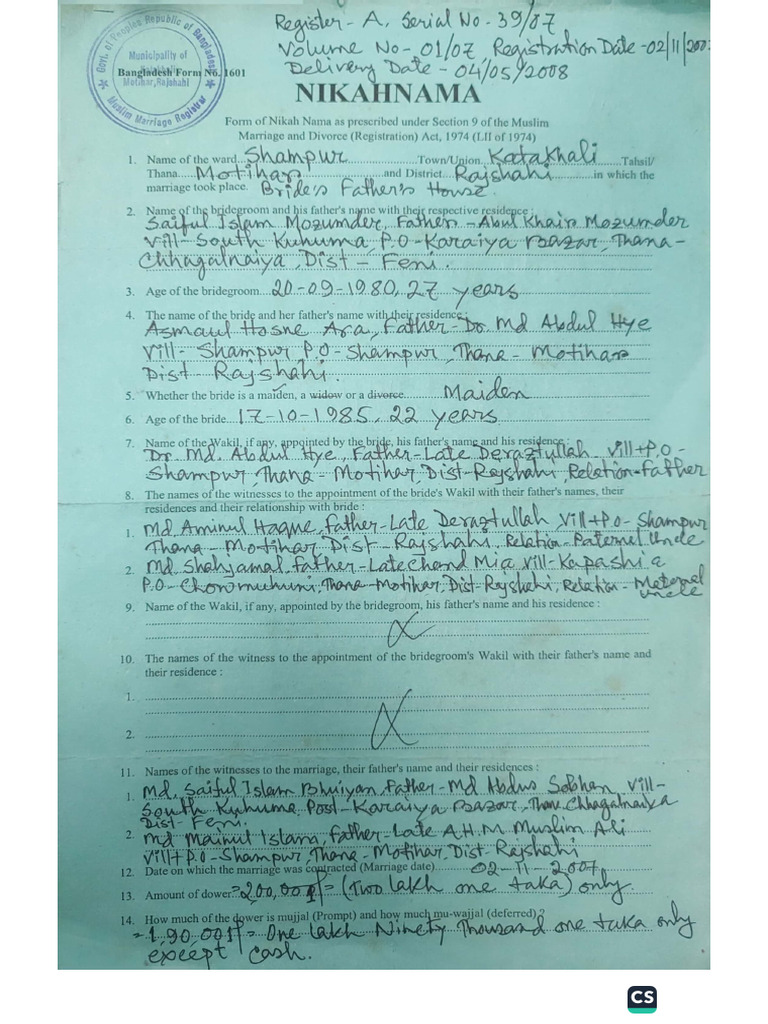 Register- A. Serial No - 39/07
Volume No- 01/07 Registration Date -02/11/200
Delivery Date - 04/05/2008
Govt. of Peoples Republic of Bangladesh
Municipality of
Motihar, Rajshahi
Muslim Marriage Registrar
Bangladesh Form No. 1601
NIKAHNAMA
Form of Nikah Nama as prescribed under Section 9 of the Muslim
Marriage and Divorce (Registration) Act, 1974 (LII of 1974)
1. Name of the ward Shampur Town/Union Katakhali Tahsil/
Thana Motihar and District Rajshahi in which the
marriage took place. Bride's Father's House.
2. Name of the bridegroom and his father's name with their respective residence :
Saiful Islam Mozumder, Father - Abul Khair Mozumder
Vill- South Kuhuma, P.O - Karaiya Bazar, Thana-
Chhagalnaiya, Dist - Feni.
3. Age of the bridegroom 20-09-1980, 27 years
4. The name of the bride and her father's name with their residence :
Asmaul Hosne Ara, Father- Dr. Md Abdul Hye
Vill- Shampur P.O - Shampur, Thana - Motihar
Dist Rajshahi.
5. Whether the bride is a maiden, a widow or a divorce Maiden
6. Age of the bride 17-10-1985, 22 years
7. Name of the Wakil, if any, appointed by the bride, his father's name and his residence :
Dr. Md. Abdul Hye, Father- Late Deraztullah Vill+P.O -
Shampur, Thana - Motihar, Dist- Rajshahi, Relation- Father
8. The names of the witnesses to the appointment of the bride's Wakil with their father's names, their
residences and their relationship with bride :
1. Md. Aminul Haque, Father- Late Deraztullah Vill+Po - Shampur
Thana - Motihar Dist - Rajshahi, Relation - Paternal Uncle
2. Md. Shahjamal, Father- Late Chand Mia Vill- Kapashia
P.O - Chowmuhuni, Thana - Motihar, Dist - Rajshahi, Relation - Maternal
uncle
9. Name of the Wakil, if any, appointed by the bridegroom, his father's name and his residence :
10. The names of the witness to the appointment of the bridegroom's Wakil with their father's name and
their residence :
1.
2.
11. Names of the witnesses to the marriage, their father's name and their residences :
1. Md. Saiful Islam Bhuiyan, Father- Md Abdus Sobhan, Vill-
South Kuhuma, Post- Karaiya Bazar, Thana Chhagalnaiya
Dist- Feni.
2. Md Mainul Islam, Father- Late A.H.M Muslim Ali
Vill+P.O - Shampur, Thana - Motihar, Dist- Rajshahi
12. Date on which the marriage was contracted (Marriage date) 02-11-2007
13. Amount of dower =200,001/= (Two lakh one taka) only.
14. How much of the dower is mujjal (Prompt) and how much mu-wajjal (deferred) ?
=1,90,001/= One lakh Ninety Thousand one taka only
except cash.
CS